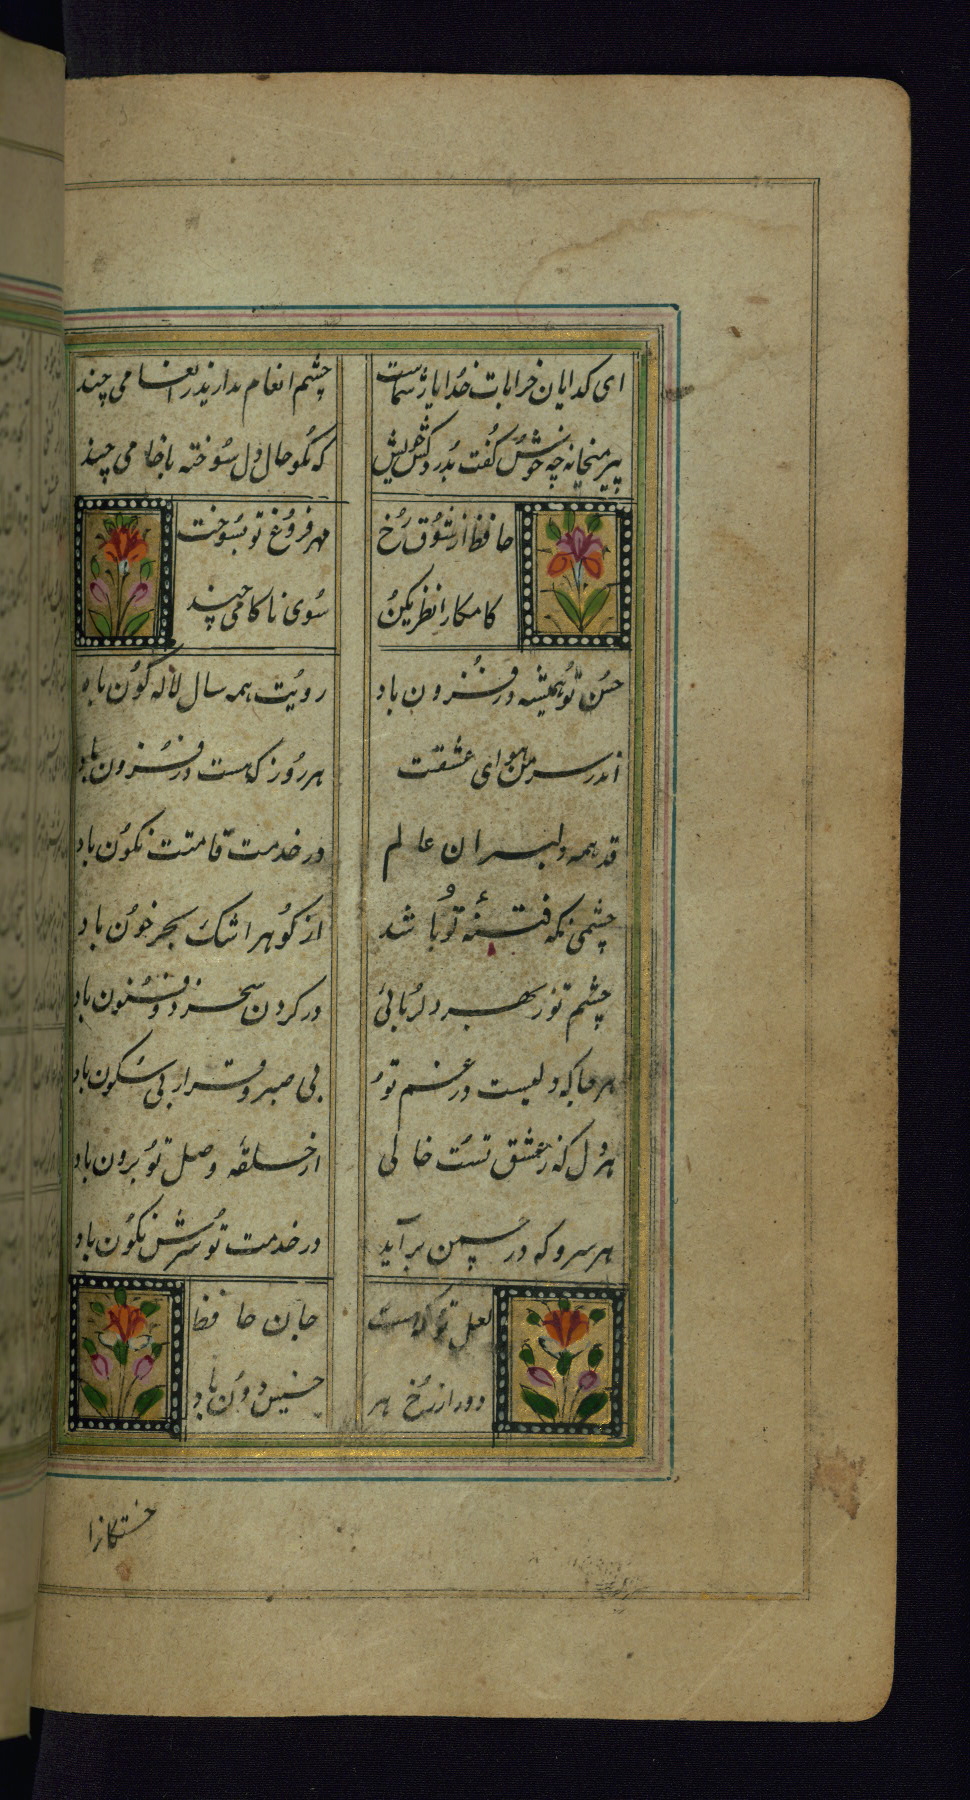 ای کدایان خرابات خدا یار شماست چشم انعام مدارید ز انعامی چند
پیر میخانه چه خوش گفت بدردی کش خویش که مگو حال دل سوخته با خامی چند
حافظ از شوق رخ مهر فروغ تو بسوخت
کامکارا نظری کن سوی ناکامی چند
حسن تو همیشه در فزون باد رویت همه سال لاله گون باد
اندر سر من هوای عشقت هر روز که هست در فزون باد
قد همه دلبران عالم در خدمت قامتت نگون باد
چشمی که نه فتنهٔ تو باشد از گوهر اشک بحر خون باد
چشم تو ز بهر دلربائی در کردن سحر ذو فنون باد
هر جا که دلیست در غم تو بی صبر و قرار بی سکون باد
هر دل که ز عشق تست خالی از حلقه وصل تو برون باد
هر سرو که در چمن برآید در خدمت تو سرش نگون باد
لعل تو که هست جان حافظ
دور از رخ هر خسیس دون باد
خستگانرا